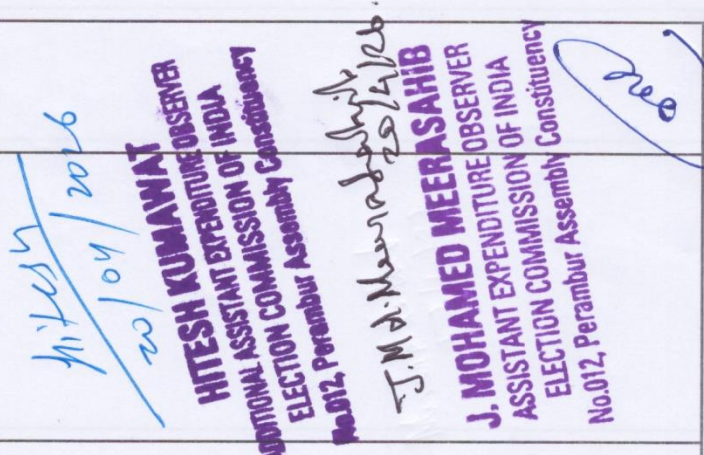 Hitesh
20/04/2026
HITESH KUMAWAT
ADDITIONAL ASSISTANT EXPENDITURE OBSERVER
ELECTION COMMISSION OF INDIA
No.012, Perambur Assembly Constituency
J. Md. Meerasahib
20/4/26.
J. MOHAMED MEERASAHIB
ASSISTANT EXPENDITURE OBSERVER
ELECTION COMMISSION OF INDIA
No.012, Perambur Assembly Constituency